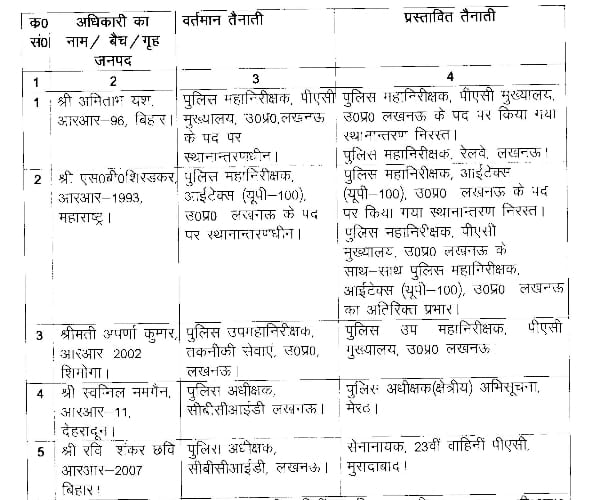 क०
सं०
अधिकारी का
नाम/ बैच/गृह
जनपद
वर्तमान तैनाती
प्रस्तावित तैनाती
1
2
3
4
1
श्री अमिताभ यश,
आरआर-96, बिहार।
पुलिस महानिरीक्षक, पीएसी
मुख्यालय, उ०प्र०,लखनऊ
के पद पर
स्थानान्तरणधीन।
पुलिस महानिरीक्षक, पीएसी मुख्यालय,
उ०प्र० लखनऊ के पद पर किया गया
स्थानान्तरण निरस्त।
पुलिस महानिरीक्षक, रेलवे, लखनऊ।
2
श्री एस०बी०शिरडकर,
आरआर-1993,
महाराष्ट्र।
पुलिस महानिरीक्षक,
आईटेक्स (यूपी-100),
उ०प्र० लखनऊ के पद
पर स्थानान्तरणधीन।
पुलिस महानिरीक्षक, आईटेक्स
(यूपी-100), उ०प्र० लखनऊ के पद
पर किया गया स्थानान्तरण निरस्त।
पुलिस महानिरीक्षक, पीएसी
मुख्यालय, उ०प्र० लखनऊ के
साथ-साथ पुलिस महानिरीक्षक,
आईटेक्स (यूपी-100), उ०प्र० लखनऊ
का अतिरिक्त प्रभार।
3
श्रीमती अपर्णा कुमार,
आरआर 2002
शिगोगा।
पुलिस उपगहानिरीक्षक,
तकनीकी सेवाएं, उ०प्र०,
लखनऊ।
पुलिस उप महानिरीक्षक, पीएसी
गुख्यालय, उ०प्र० लखनऊ
4
श्री स्वप्निल ममगैन,
आरआर-11,
देहरादून।
पुलिस अधीक्षक,
सीबीसीआईडी लखनऊ।
पुलिस अधीक्षक(क्षेत्रीय) अभिसूचना,
मेरठ।
5
श्री रवि शंकर छवि
आरआर-2007
बिहार।
पुलिस अधीक्षक,
सीबीसीआईडी, लखनऊ।
सेनानायक, 23वीं वाहिनीं पीएसी,
मुरादाबाद।